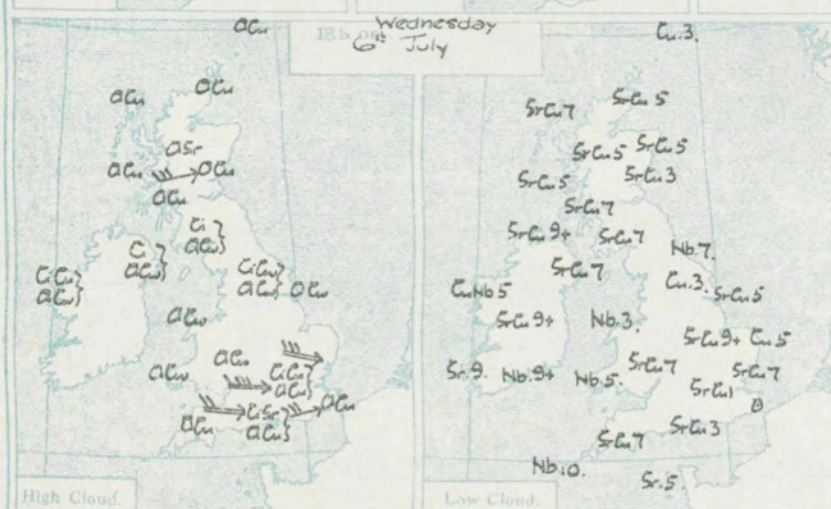 Wednesday
6th July
18h on
ACu
ACu
ACu
ASr
ACu
ACu
ACu
Ci
ACu
Ci
ACu
CiCu
ACu
CiCu
ACu
ACu
ACu
ACu
ACu
CiCu
ACu
ACu
CiSr
ACu
ACu
High Cloud.
Cu.3.
SrCu7
SrCu5
SrCu5
SrCu5
SrCu5
SrCu3
SrCu7
SrCu9+
SrCu7
Nb.7.
SrCu7
Cu.3.
SrCu5
CuNb5
SrCu9+
Nb.3.
SrCu9+
Cu5
Sr.9.
Nb.9+
Nb.5.
SrCu7
SrCu7
SrCu1
0
SrCu7
SrCu3
Nb.10.
Sr.5.
Low Cloud.